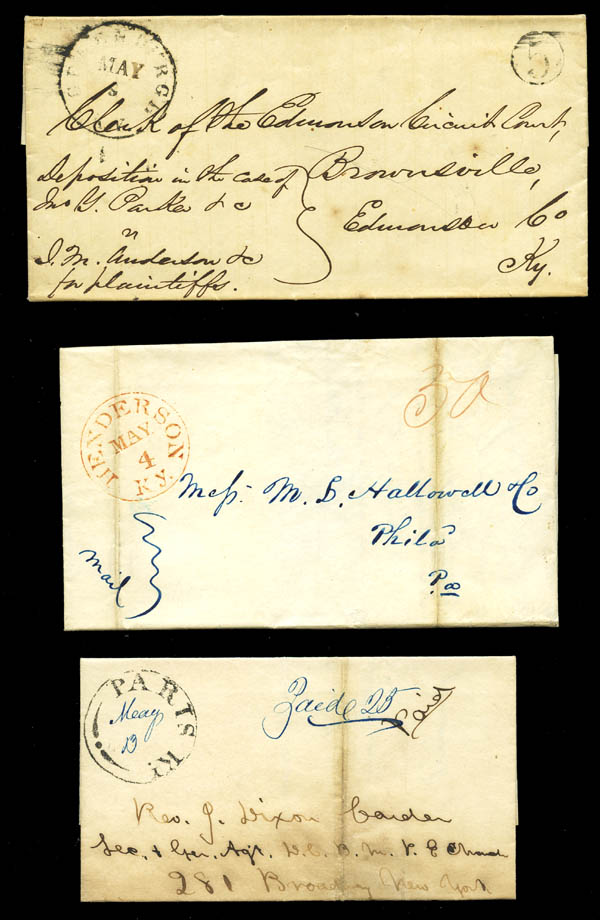 MAY
5
Clerk of the Edmonson Circuit Court,
Deposition in the case of
Jno Y. Parker &c
vs
J. M. Anderson &c
for plaintiffs.
Brownsville,
Edmonson Co
Ky.
HENDERSON
MAY
4
KY.
50
Mess. M. L. Hallowell & Co
Phila
Pa
mail
PARIS Ky
May
13
Paid 25
Paid
Rev. J. Dixon Carder
Sec. & Gen. Agt. D.C. B. M. P. E Church
281 Broadway New York